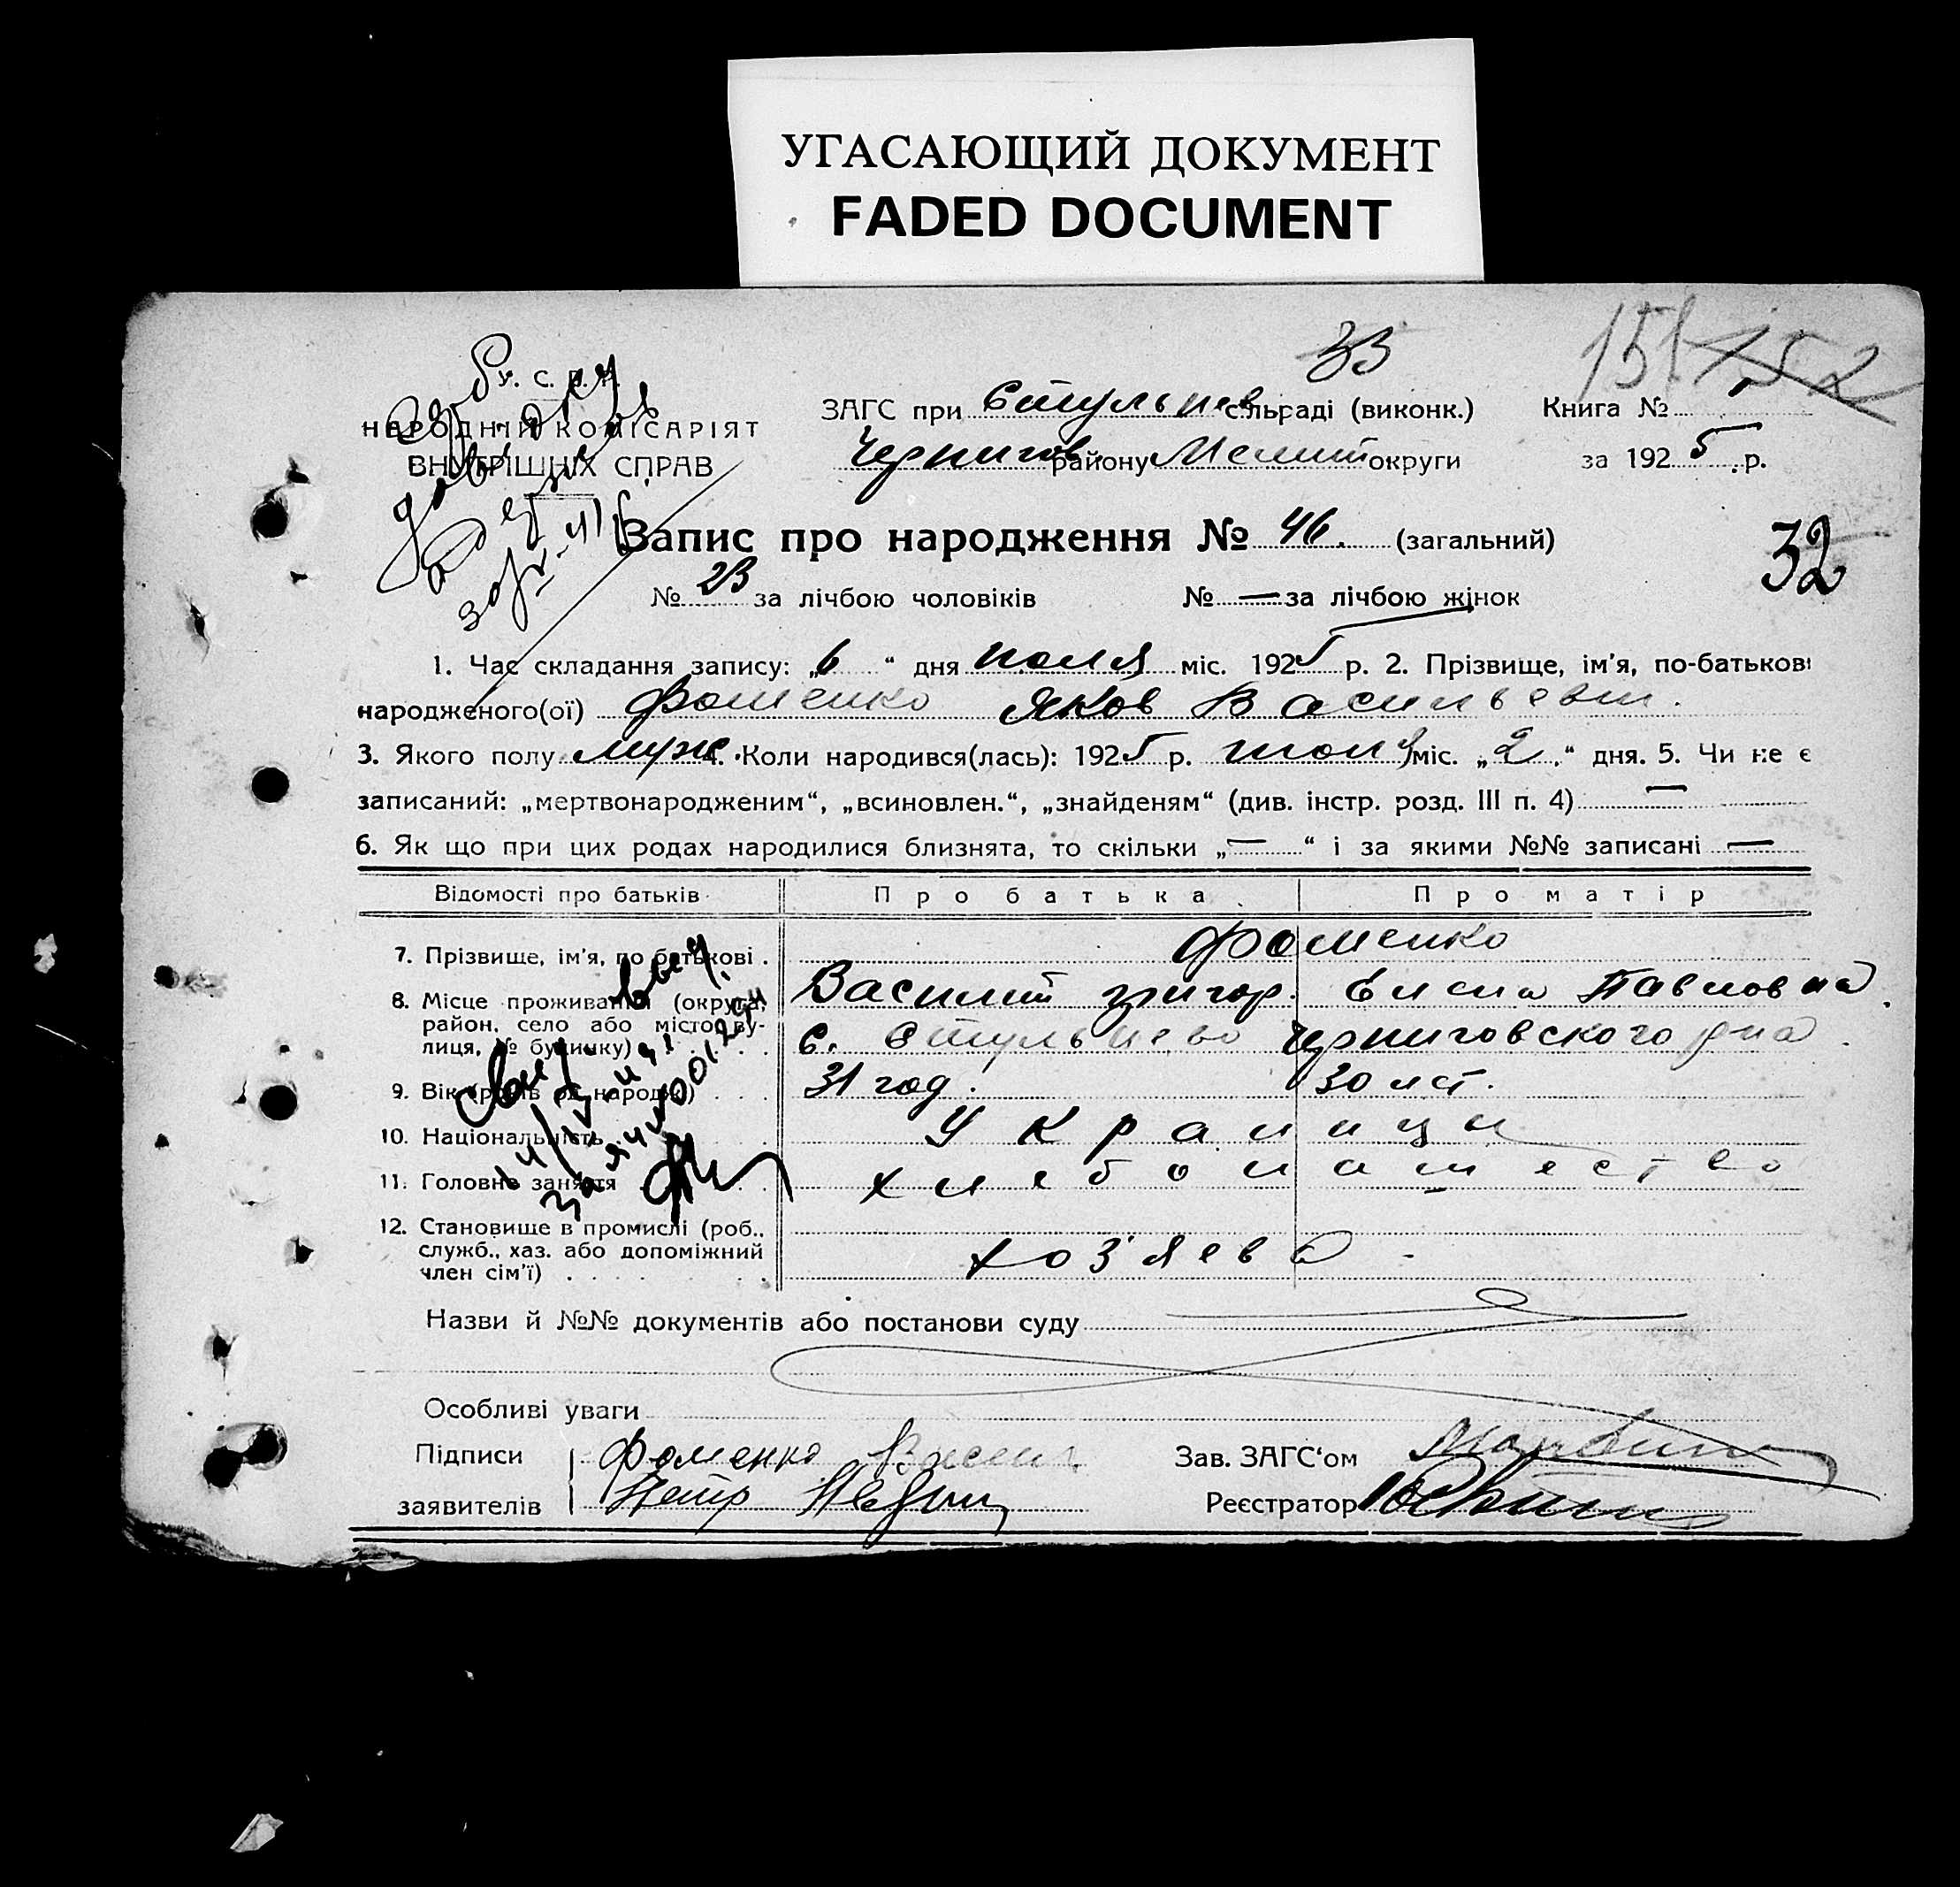 УГАСАЮЩИЙ ДОКУМЕНТ
FADED DOCUMENT
33
151 152
У. С. Р. Р.
НАРОДНІЙ КОМІСАРІЯТ
ВНУТРІШНІХ СПРАВ
ЗАГС при Стульнев. сільраді (виконк.) Книга №
Чернигов. району Мелит округи за 1925 р.
Запис про народження № 46. (загальний)
32
№ 23 за лічбою чоловіків № — за лічбою жінок
1. Час складання запису: „6“ дня июля міс. 1925 р. 2. Прізвище, ім'я, по-батькові
народженого(ої) Фоменко Яков Васильевич.
3. Якого полу муж. 4. Коли народився(лась): 1925 р. июля міс. „2.“ дня. 5. Чи не є
записаний: „мертвонародженим“, „всиновлен.“, „знайденям“ (див. інстр. розд. III п. 4) —
6. Як що при цих родах народилися близнята, то скільки „—“ і за якими №№ записані —
Відомості про батьків Про батька Про матір
7. Прізвище, ім'я, по батькові . Фоменко
Василий Григор. Елена Павловна.
8. Місце проживання (округа,
район, село або місто, ву-
лиця, № будинку) с. Стульнево Черниговского р-на.
9. Вік (років од народж.) . . . 31 год. 30 лет.
10. Національність Украинци
11. Головне заняття хлебопашество
12. Становище в промислі (роб.,
служб., хаз. або допоміжний
член сім'ї) . хоз'яева
Назви й №№ документів або постанови суду
Особливі уваги
Підписи Фоменко Васил Зав. ЗАГС'ом
заявителів Петр Реєстратор